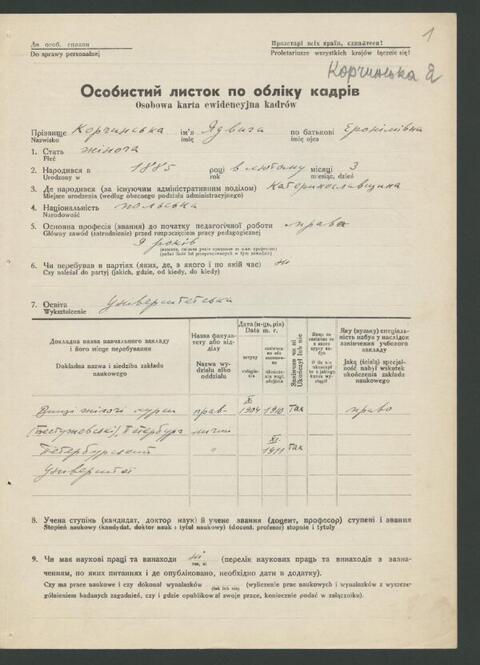 1
До особ. справи
Do sprawy personalnej
Пролетарі всіх країн, єднайтеся!
Proletariusze wszystkich krajów łączcie się!
Корчинська Я
Особистий листок по обліку кадрів
Osobowa karta ewidencyjna kadrów
Прізвище Корчинська ім'я Ядвига по батькові Еронімівна
Nazwisko imię imię ojca
1. Стать жіноча
Płeć
2. Народився в 1885 році в лютому місяці 3
Urodzony w roku, miesiąc, dzień
3. Де народився (за існуючим адміністративним поділом) Катеринославщина
Miejsce urodzenia (według obecnego podziału administracyjnego)
4. Національність польська
Narodowość
5. Основна професія (звання) до початку педагогічної роботи права
Główny zawód (zatrudnienie) przed rozpoczęciem pracy pedagogicznej
9 років
6. Чи перебував в партіях (яких, де, з якого і по який час) ні
Czy należał do partyj (jakich, gdzie, od kiedy, do kiedy)
7. Освіта Університетська
Wykształcenie
Докладна назва навчального закладу і його місце перебування
Dokładna nazwa i siedziba zakładu naukowego
Назва факультету або відділу
Nazwa wydziału albo oddziału
Дата (м-ць, рік)
Data m. r.
вступу
Закінчив чи ні
Ukończył lub nie
Яку (вузьку) спеціальність набув у наслідок закінчення учбового закладу
Jaką (ścisłą) specjalność nabył wskutek ukończenia zakładu naukowego
Вищі жіночі курси прав- X 1904 1910 так право
(Бестужевські), Петербург ничий
Петербурзький " XI 1911 так
Університет
8. Учена ступінь (кандидат, доктор наук) й учене звання (доцент, професор) ступені і звання
Stopień naukowy (kandydat, doktor nauk i tytuł naukowy) (docent, profesor) stopnie i tytuły
9. Чи має наукові праці та винаходи ні (перелік наукових праць та винаходів з зазначенням, по яких питаннях і де опубліковано, необхідно дати в додатку).
так, ні
Czy ma prace naukowe i czy dokonał wynalazków (wyliczenie prac naukowych i wynalazków z wyszczególnieniem badanych zagadnień, czy i gdzie opublikował swoje prace, koniecznie podać w załączniku).
(tak lub nie)